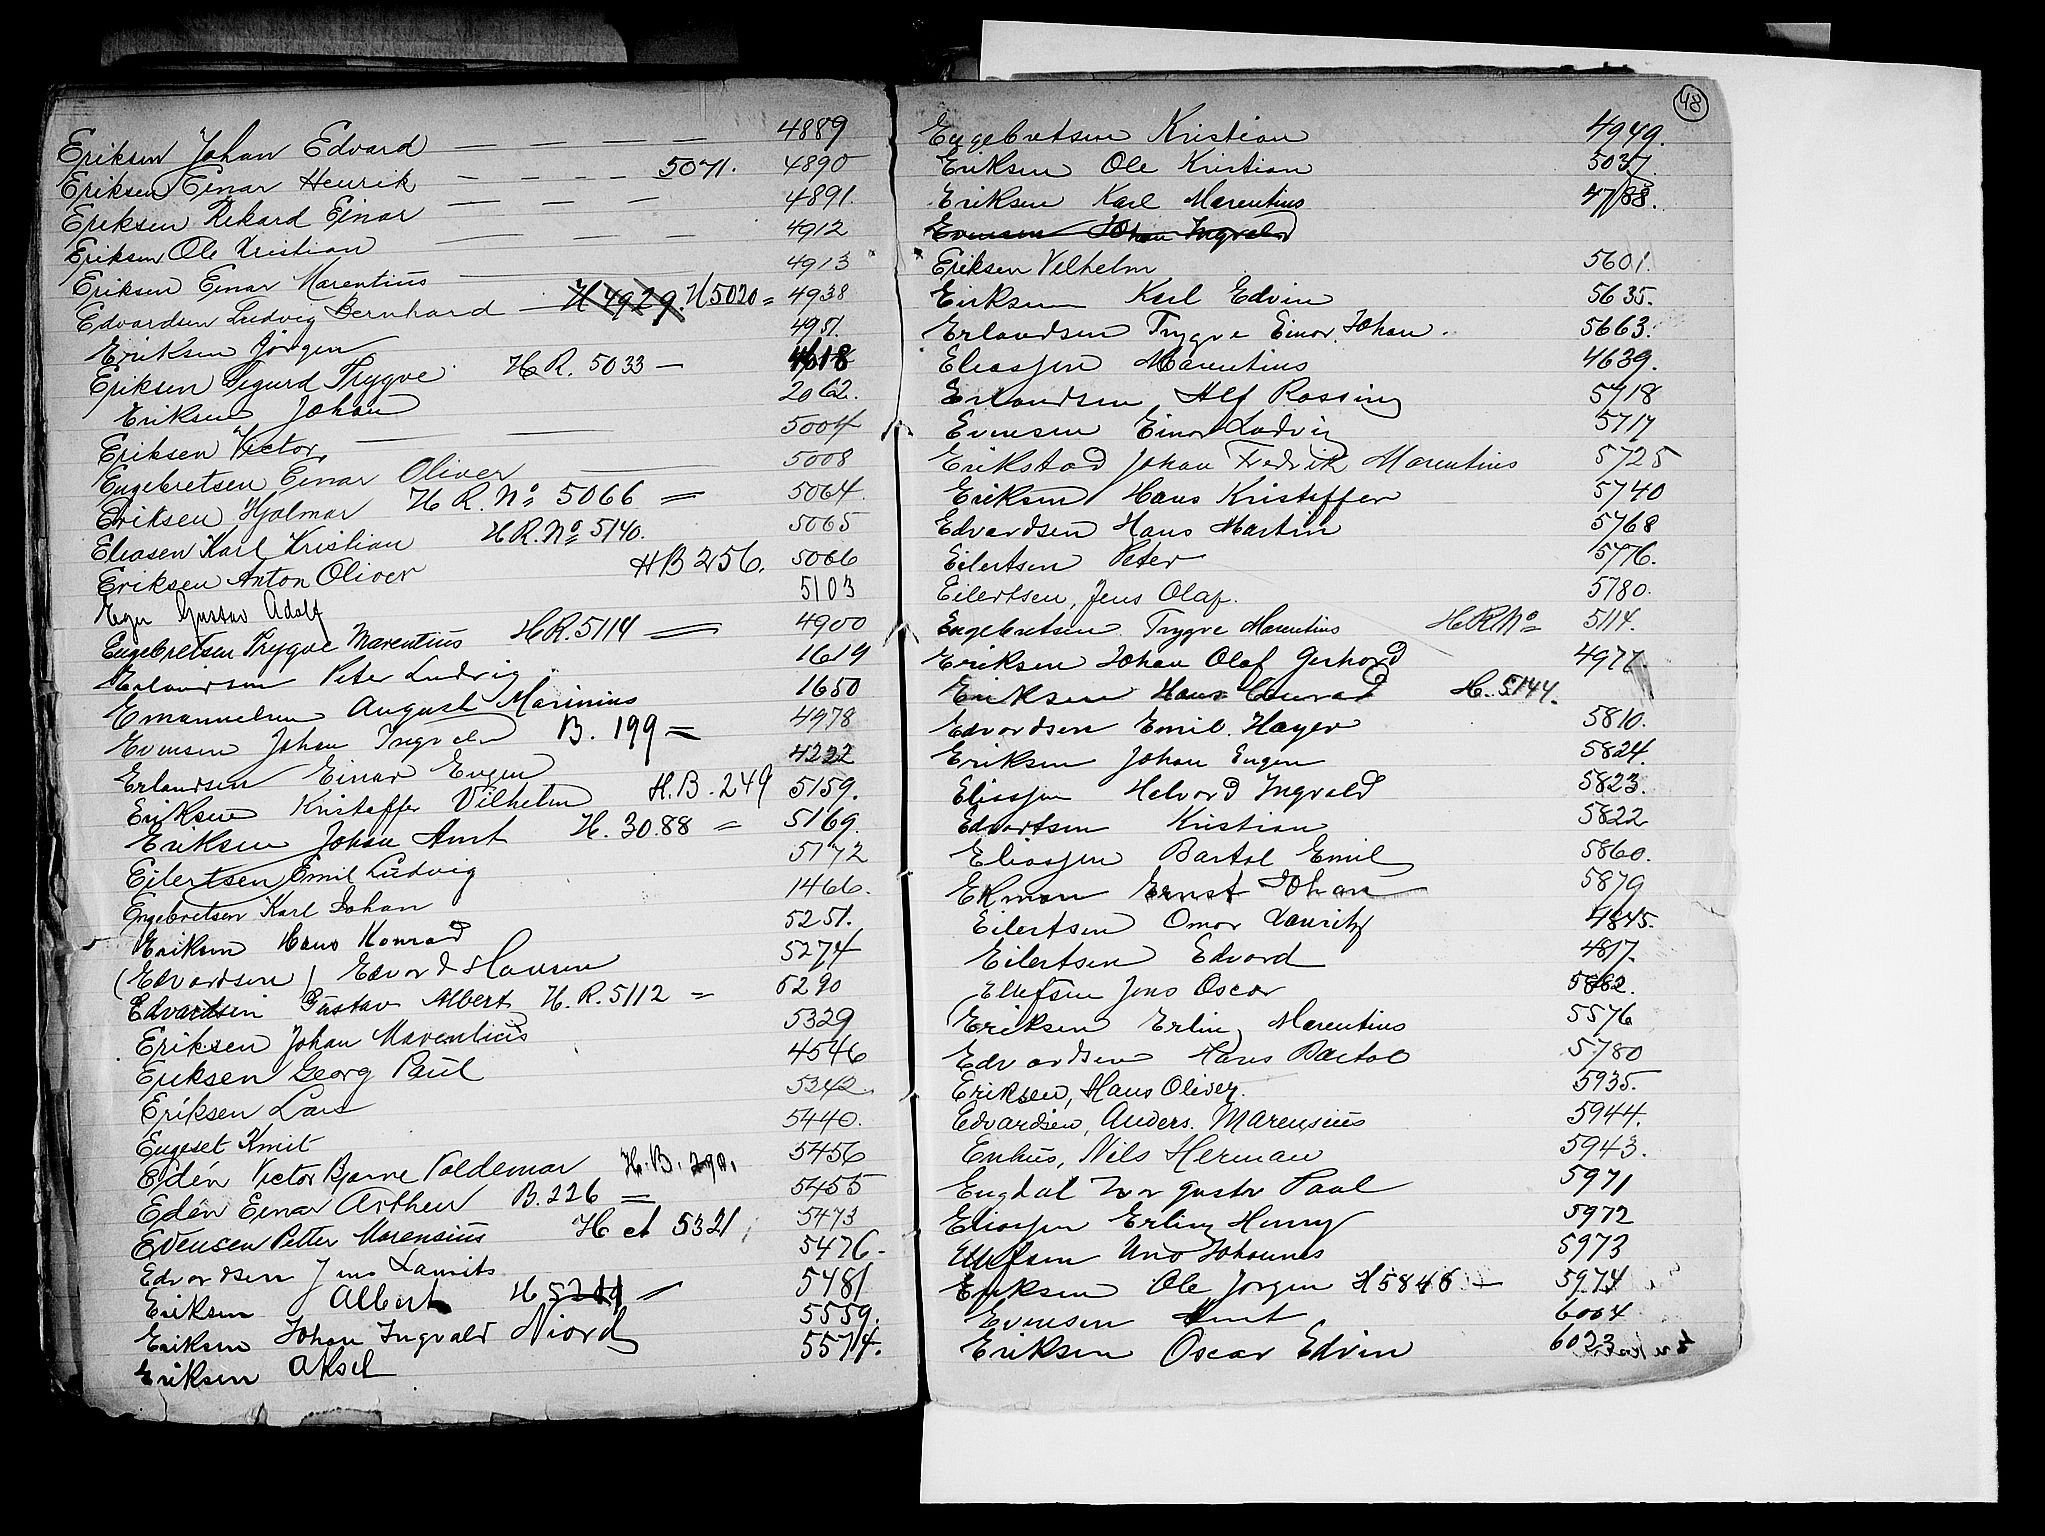 Eriksen Johan Edvard — — — — 4889
Eriksen Einar Henrik — — — — 5071. 4890
Eriksen Rikard Einar — — — 4891
Eriksen Ole Kristian — — — 4912
Eriksen Einar Marentius — 4913
Edvardsen Ludvig Bernhard — H 4929. H 5020 = 4938
Eriksen Jörgen 4951.
Eriksen Sigurd Trygve H R. 5033 — 4618
Eriksen Johan 2062.
Eriksen Victor, — — 5004
Engebretsen Einar Oliver — 5008
Eriksen Hjalmar H R. No 5066 = 5064
Eliasen Karl Kristian H R. No 5140. 5065
Eriksen Anton Oliver H B 256. 5066
Eger Gustav Adolf 5103
Engebretsen Trygve Marentius H R. 5114 = 4900
Erlandsen Peter Ludvig 1619
Emanuelsen August Marinius 1650
Evensen Johan Ingvald B. 199 = 4978
Erlandsen Einar Eugen 4222
Eriksen Kristoffer Vilhelm H. B. 249 5159.
Eriksen Johan Arnt H. 30.88 = 5169.
Eilertsen Emil Ludvig 5172
Engebretsen Karl Johan 1466.
Eriksen Hans Konrad 5251.
(Edvardsen) Edvard Hansen 5274
Edvardsen Gustav Albert H. R. 5112 = 5290
Eriksen Johan Marentius 5329
Eriksen Georg Paul 4546
Eriksen Lars 5342.
Engeset Knut 5440.
Edén Victor Bjarne Valdemar H. B. 290. 5456
Edén Einar Arthur B. 226 = 5455
Evensen Petter Marensius H et 5321 5473
Edvardsen Jens Laurits 5476-
Eriksen Albert H 5211 = 5481
Eriksen Johan Ingvald Njord 5559.
Eriksen Aksel 5574.
48
Engebretsen Kristian 4949.
Eriksen Ole Kristian 5037.
Eriksen Karl Marentius 4788.
Evensen Johan Ingvald
Eriksen Vilhelm 5601.
Eriksen Karl Edvin 5635.
Erlandsen Trygve Einar Johan. 5663.
Eliassen Marentius 4639.
Erlandsen Alf Rossing 5718
Evensen Einar Ludvig 5717
Erikstad Johan Fredrik Marentius 5725
Eriksen Hans Kristoffer 5740
Edvardsen Hans Martin 5768
Eilertsen Peter 5776.
Eilertsen, Jens Olaf. 5780.
Engebretsen Trygve Marentius H R No 5114.
Eriksen Johan Olaf Gerhard 4977
Eriksen Hans Conrad H. 5144.
Edvardsen Emil. Hager 5810.
Eriksen Johan Eugen 5824.
Eliassen Halvard Ingvald 5823.
Edvartsen Kristian 5822
Eliassen Bartol Emil 5860.
Ekman Ernst Johan 5879
Eilertsen Omar Lauritz 4845.
Eilertsen Edvard 4817.
Ellefsen Jens Oscar 5882.
Eriksen Erling Marentius 5576
Edvardsen Hans Bartol 5780
Eriksen, Hans Oliver. 5935.
Edvardsen, Anders. Marensius 5944.
Enhus, Nils Herman 5943.
Engdal Ivar Gustav Paul 5971
Eliassen Erling Henry 5972
Ellefsen Uno Johannes 5973
Eriksen Ole Jörgen H 5846 — 5974
Evensen Arnt 6004
Eriksen Oscar Edvin 6023